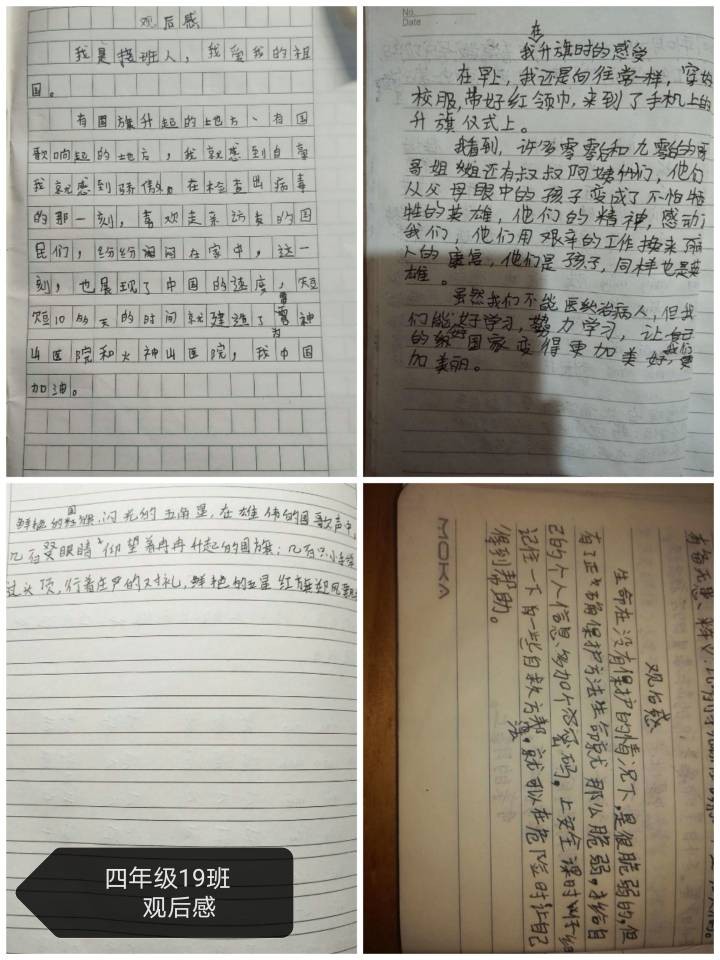 观后感
我是接班人，我爱我的祖
国。
有国旗升起的地方、有国
歌响起的地方，我就感到自豪
我就感到骄傲。在检查出病毒
的那一刻，喜欢走亲访友的国
民们，纷纷留在家中，这一
刻，也展现了中国的速度，短
短10多天的时间就建造了雷神
山医院和火神山医院，我中国
加油。
No.
Date
在
我升旗时的感受
在早上，我还是向往常一样，穿好
校服，带好红领巾，来到了手机上的
升旗仪式上。
我看到，许多零零后和九零后的哥
哥姐姐还有叔叔阿姨们，他们
从父母眼中的孩子变成了不怕牺
牲的英雄，他们的精神，感动
我们，他们用艰辛的工作换来了病
人的康复，他们是孩子，同样也是英
雄。
虽然我们不能医治病人，但我
们能好好学习，努力学习，让
的国家变得更加美好，更
加美丽。
鲜艳的红旗，闪光的五角星，在雄伟的国歌声中，
几百双眼睛仰望着冉冉升起的国旗；几百只小手举
过头顶，行着庄严的对礼，鲜艳的五星红旗迎风飘
观后感
生命在没有保护的情况下，是很脆弱的，但
有了正确保护方法生命就那么脆弱，
己的个人信息多加个密码。上安全课时
记住一下自一些自救方法，就可以在危险时让自己
得到帮助。
MOKA
四年级19班
观后感